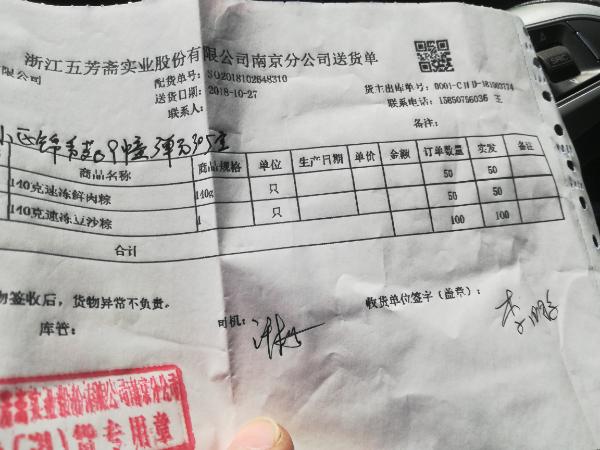 浙江五芳斋实业股份有限公司南京分公司送货单
限公司
配货单号: SO2018102648310
货主出库单号: 0001-CHD-181003774
送货日期: 2018-10-27
联系电话: 15850756036 王
联系人:
备注:
商品名称 商品规格 单位 生产日期 单价 金额 订单数量 实发 备注
140克速冻鲜肉粽 140g 只 50 50
140克速冻豆沙粽 1 只 50 50
合计 100 100
物签收后，货物异常不负责。
库管:
司机:
收货单位签字（盖章）:
实业股份有限公司南京分公司
货专用章